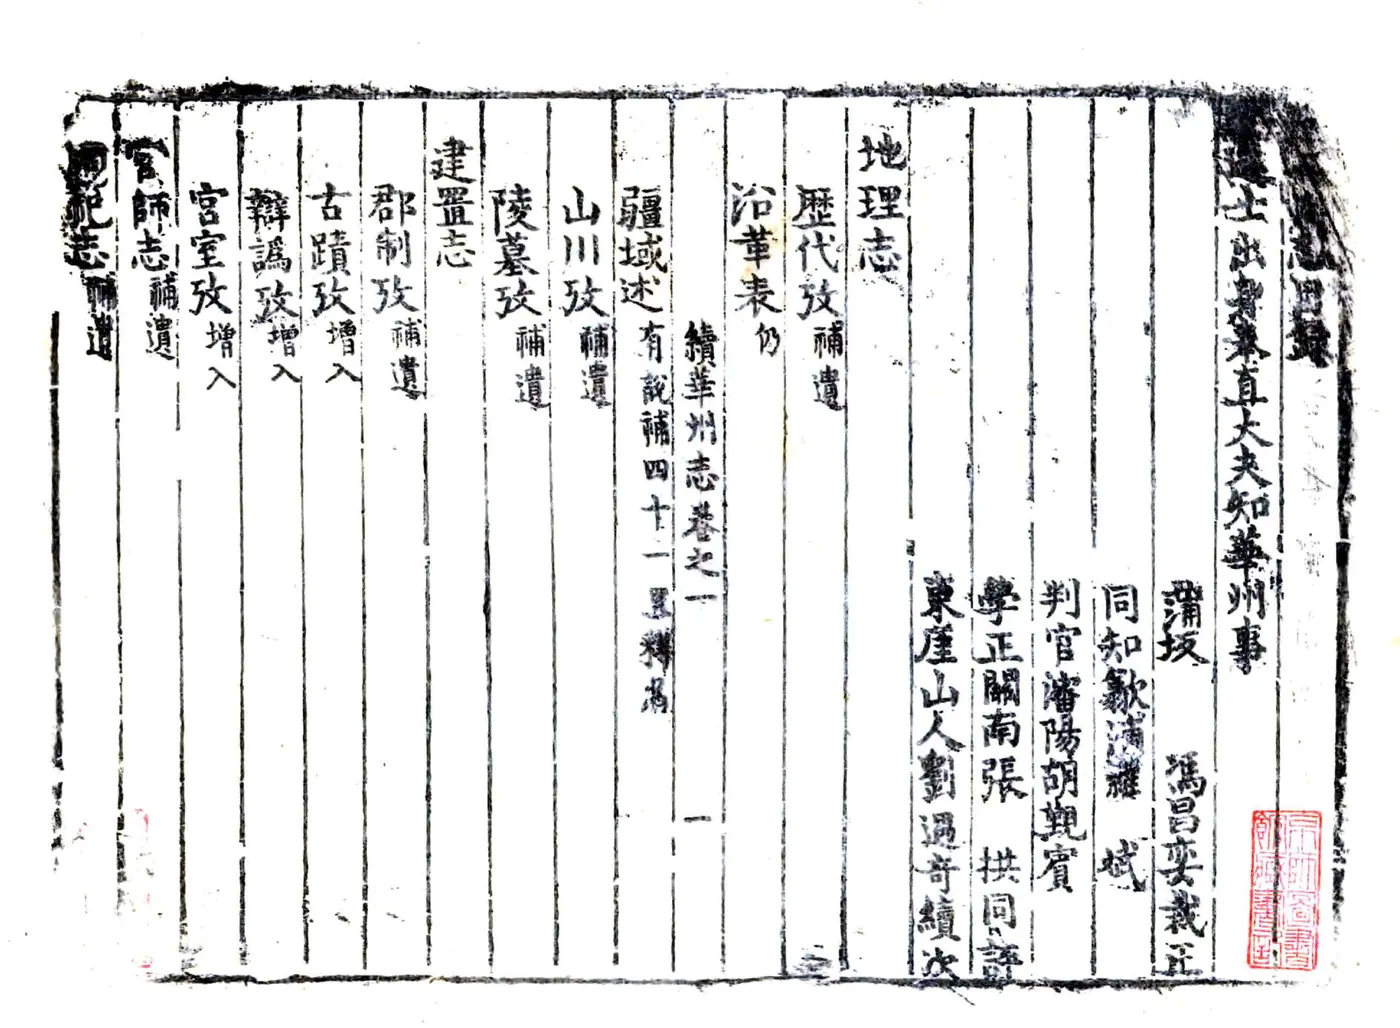 志目録
進士出身奉直大夫知華州事
蒲坂　馮昌奕裁正
同知歙浦羅　斌
判官瀋陽胡觀賓
學正關南張　拱同訂
東崖山人劉遇奇續次
地理志
歷代攷補遺
沿革表仍
續華州志卷之一　一
疆域述有說補四十一里釋爲
山川攷補遺
陵墓攷補遺
建置志
郡制攷補遺
古蹟攷增入
辯譌攷增入
宮室攷增入
官師志補遺
祀志補遺
京師圖書館藏書印